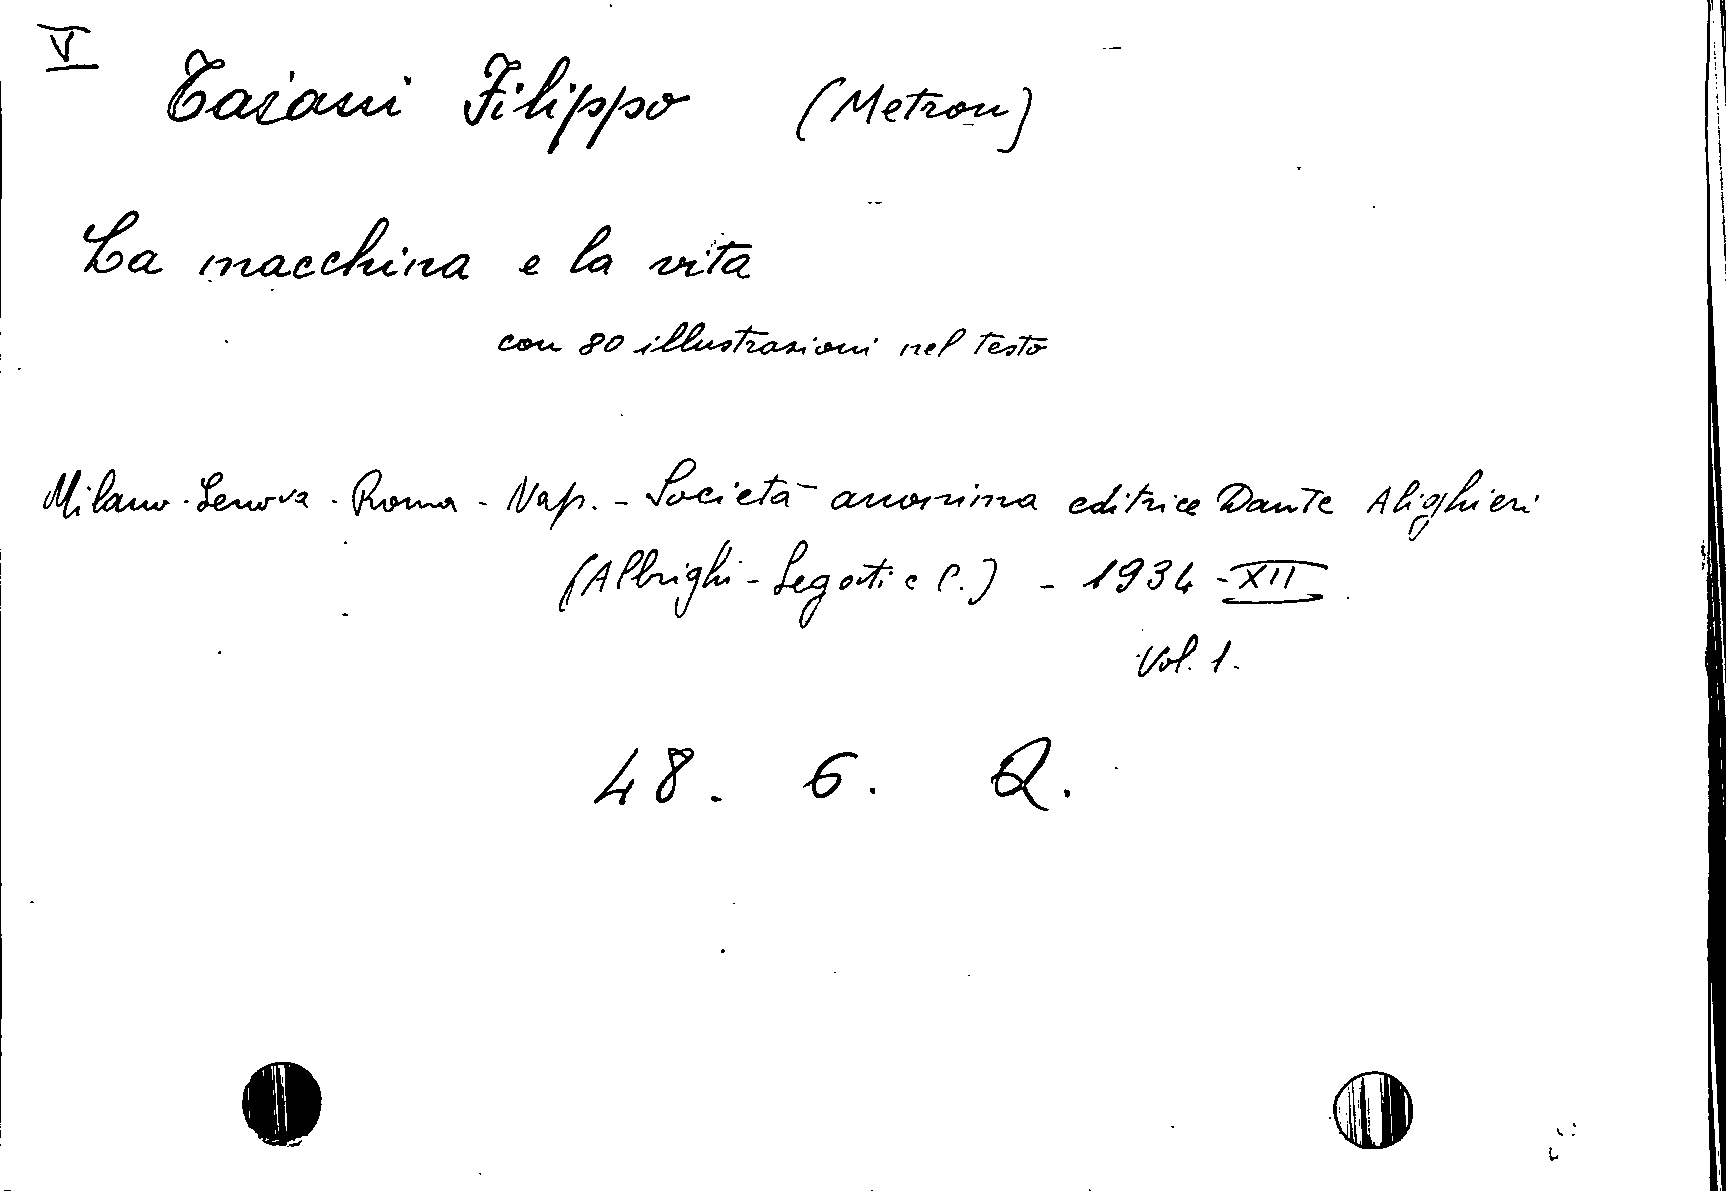 V
Tajani Filippo (Metron)
La macchina e la vita
con 80 illustrazioni nel testo
Milano - Genova - Roma - Nap. - Società anonima editrice Dante Alighieri
(Albrighi - Segati e C.) - 1934 - XII
Vol. 1.
48. 6. Q.